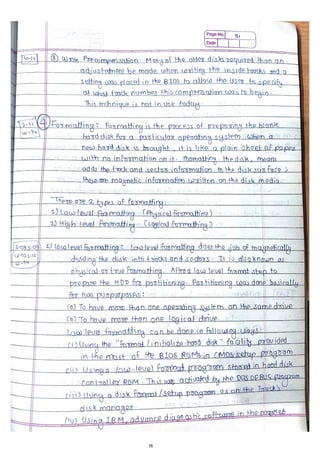 Page No. 51
Date
W-24
⑧ Write Precompensation Many of the older disks required that an
adjustement be made when writing the inside tracks and a
setting was placed in the BIOS to allow the user to specify
at what track number this compensation was to begin.
This technique is not in use today.
S-22
W-20
④ Formatting: Formatting is the process of preparing the blank
hard disk for a particular operating system. When a
new hard disk is bought, it is like a plain sheet of paper
with no information on it. Formatting the disk, means
adds the track and sector information to the disk surface
these are magnetic information written on the disk media.
There are 2 types of formatting:
1) Low level Formatting (Physical formatting)
2) High level Formatting (Logical formatting)
1) Low level formatting: Low level formatting does the job of magnetically
dividing the disk into tracks and sectors. It is also known as
physical or true formatting. After a low level format step to
prepare the HDD for partitioning. Partitioning was done basically
for two purposes:
(a) To have more than one operating system on the same drive
(b) To have more than one logical drive
Low level formatting can be done in following ways:
(i) Using the "format / initialize hard disk" facility provided
in the most of the BIOS ROMs in CMOS setup program
(ii) Using a low-level format program stored in hard disk
controller ROM. This was activated by the DOS DEBUG program
(iii) Using a disk format / setup program as on the
disk manager
(iv) Using IBM, advance diagnostic software in the
51